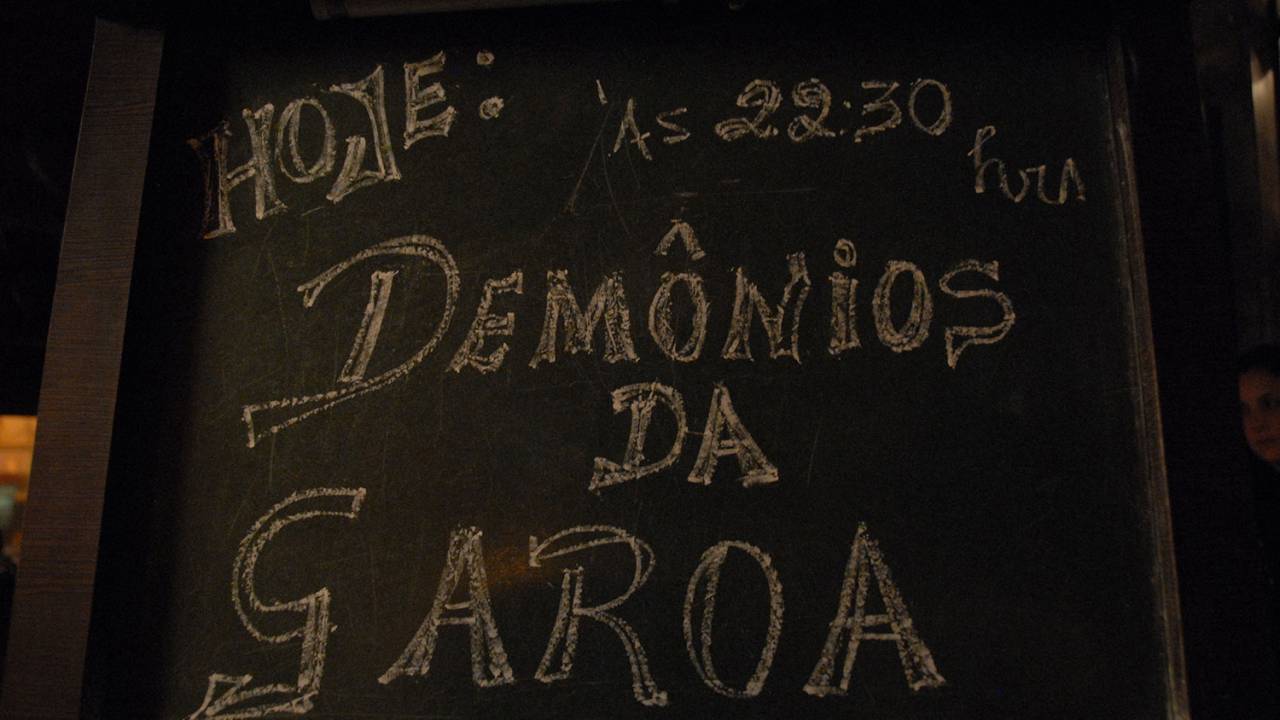 HOJE: Às 22:30 hrs
DEMÔNiOS
DA
GAROA